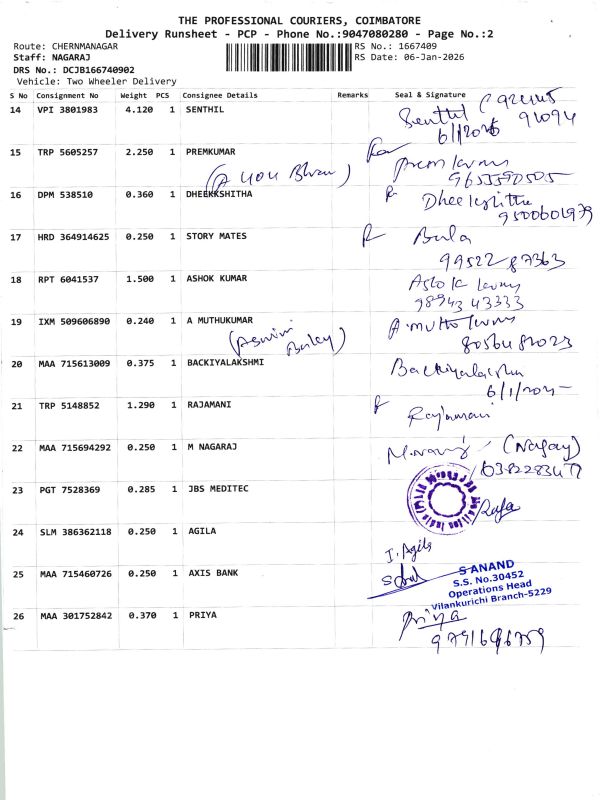 THE PROFESSIONAL COURIERS, COIMBATORE
Delivery Runsheet - PCP - Phone No.:9047080280 - Page No.:2
Route: CHERNMANAGAR RS No.: 1667409
Staff: NAGARAJ RS Date: 06-Jan-2026
DRS No.: DCJB166740902
Vehicle: Two Wheeler Delivery
S No Consignment No Weight PCS Consignee Details Remarks Seal & Signature
14 VPI 3801983 4.120 1 SENTHIL Senthil
6/1/2026
15 TRP 5605257 2.250 1 PREMKUMAR Prem kumar
9655590505
16 DPM 538510 0.360 1 DHEEKKSHITHA Dheekshitha
9500601979
17 HRD 364914625 0.250 1 STORY MATES Bala
99522 87363
18 RPT 6041537 1.500 1 ASHOK KUMAR Ashok kumar
98943 43333
19 IXM 509606890 0.240 1 A MUTHUKUMAR A. muthu kumar
(Aswini
20 MAA 715613009 0.375 1 BACKIYALAKSHMI Backiyalakshmi
21 TRP 5148852 1.290 1 RAJAMANI Rajamani
22 MAA 715694292 0.250 1 M NAGARAJ
23 PGT 7528369 0.285 1 JBS MEDITEC
24 SLM 386362118 0.250 1 AGILA I. Agila
25 MAA 715460726 0.250 1 AXIS BANK S ANAND
S.S. No.30452
Operations Head
Vilankurichi Branch-5229
26 MAA 301752842 0.370 1 PRIYA Priya